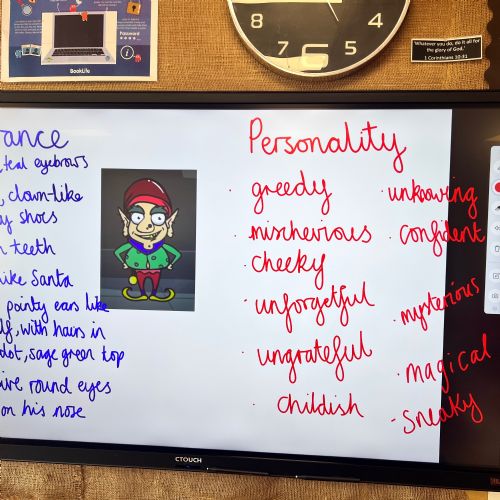 Password
BookLife
12
1
2
3
4
5
6
7
8
9
"Whatever you do, do it all for
the glory of God."
1 Corinthians 10:31
teal eyebrows
clown-like
shoes
teeth
like Santa
pointy ears like
with hairs in
sage green top
round eyes
on his nose
Personality
· greedy
· mischevious
· cheeky
· unforgetful
· ungrateful
· childish
· unknowing
· confident
· mysterious
· magical
· sneaky
CTOUCH